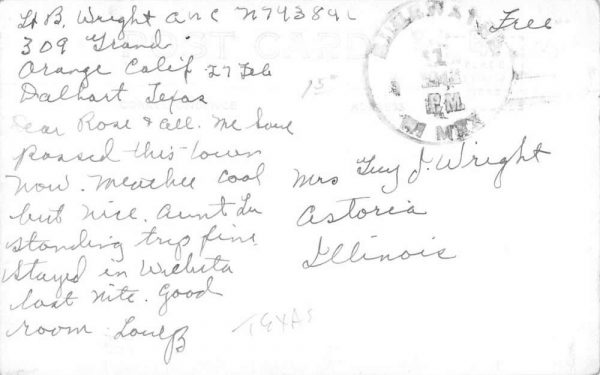 Lt B. Wright ANC N794384
309 Grand
Orange Calif 27 Feb
Dalhart Texas
Dear Rose & all. We have
passed this town
now. Weather cool
but nice. Aunt Lu
standing trip fine
stayed in Wichita
last nite. Good
room Love B
Free
PM
N MEX
15¢
Mrs Guy J. Wright
Astoria
Illinois
TEXAS
POST CARD